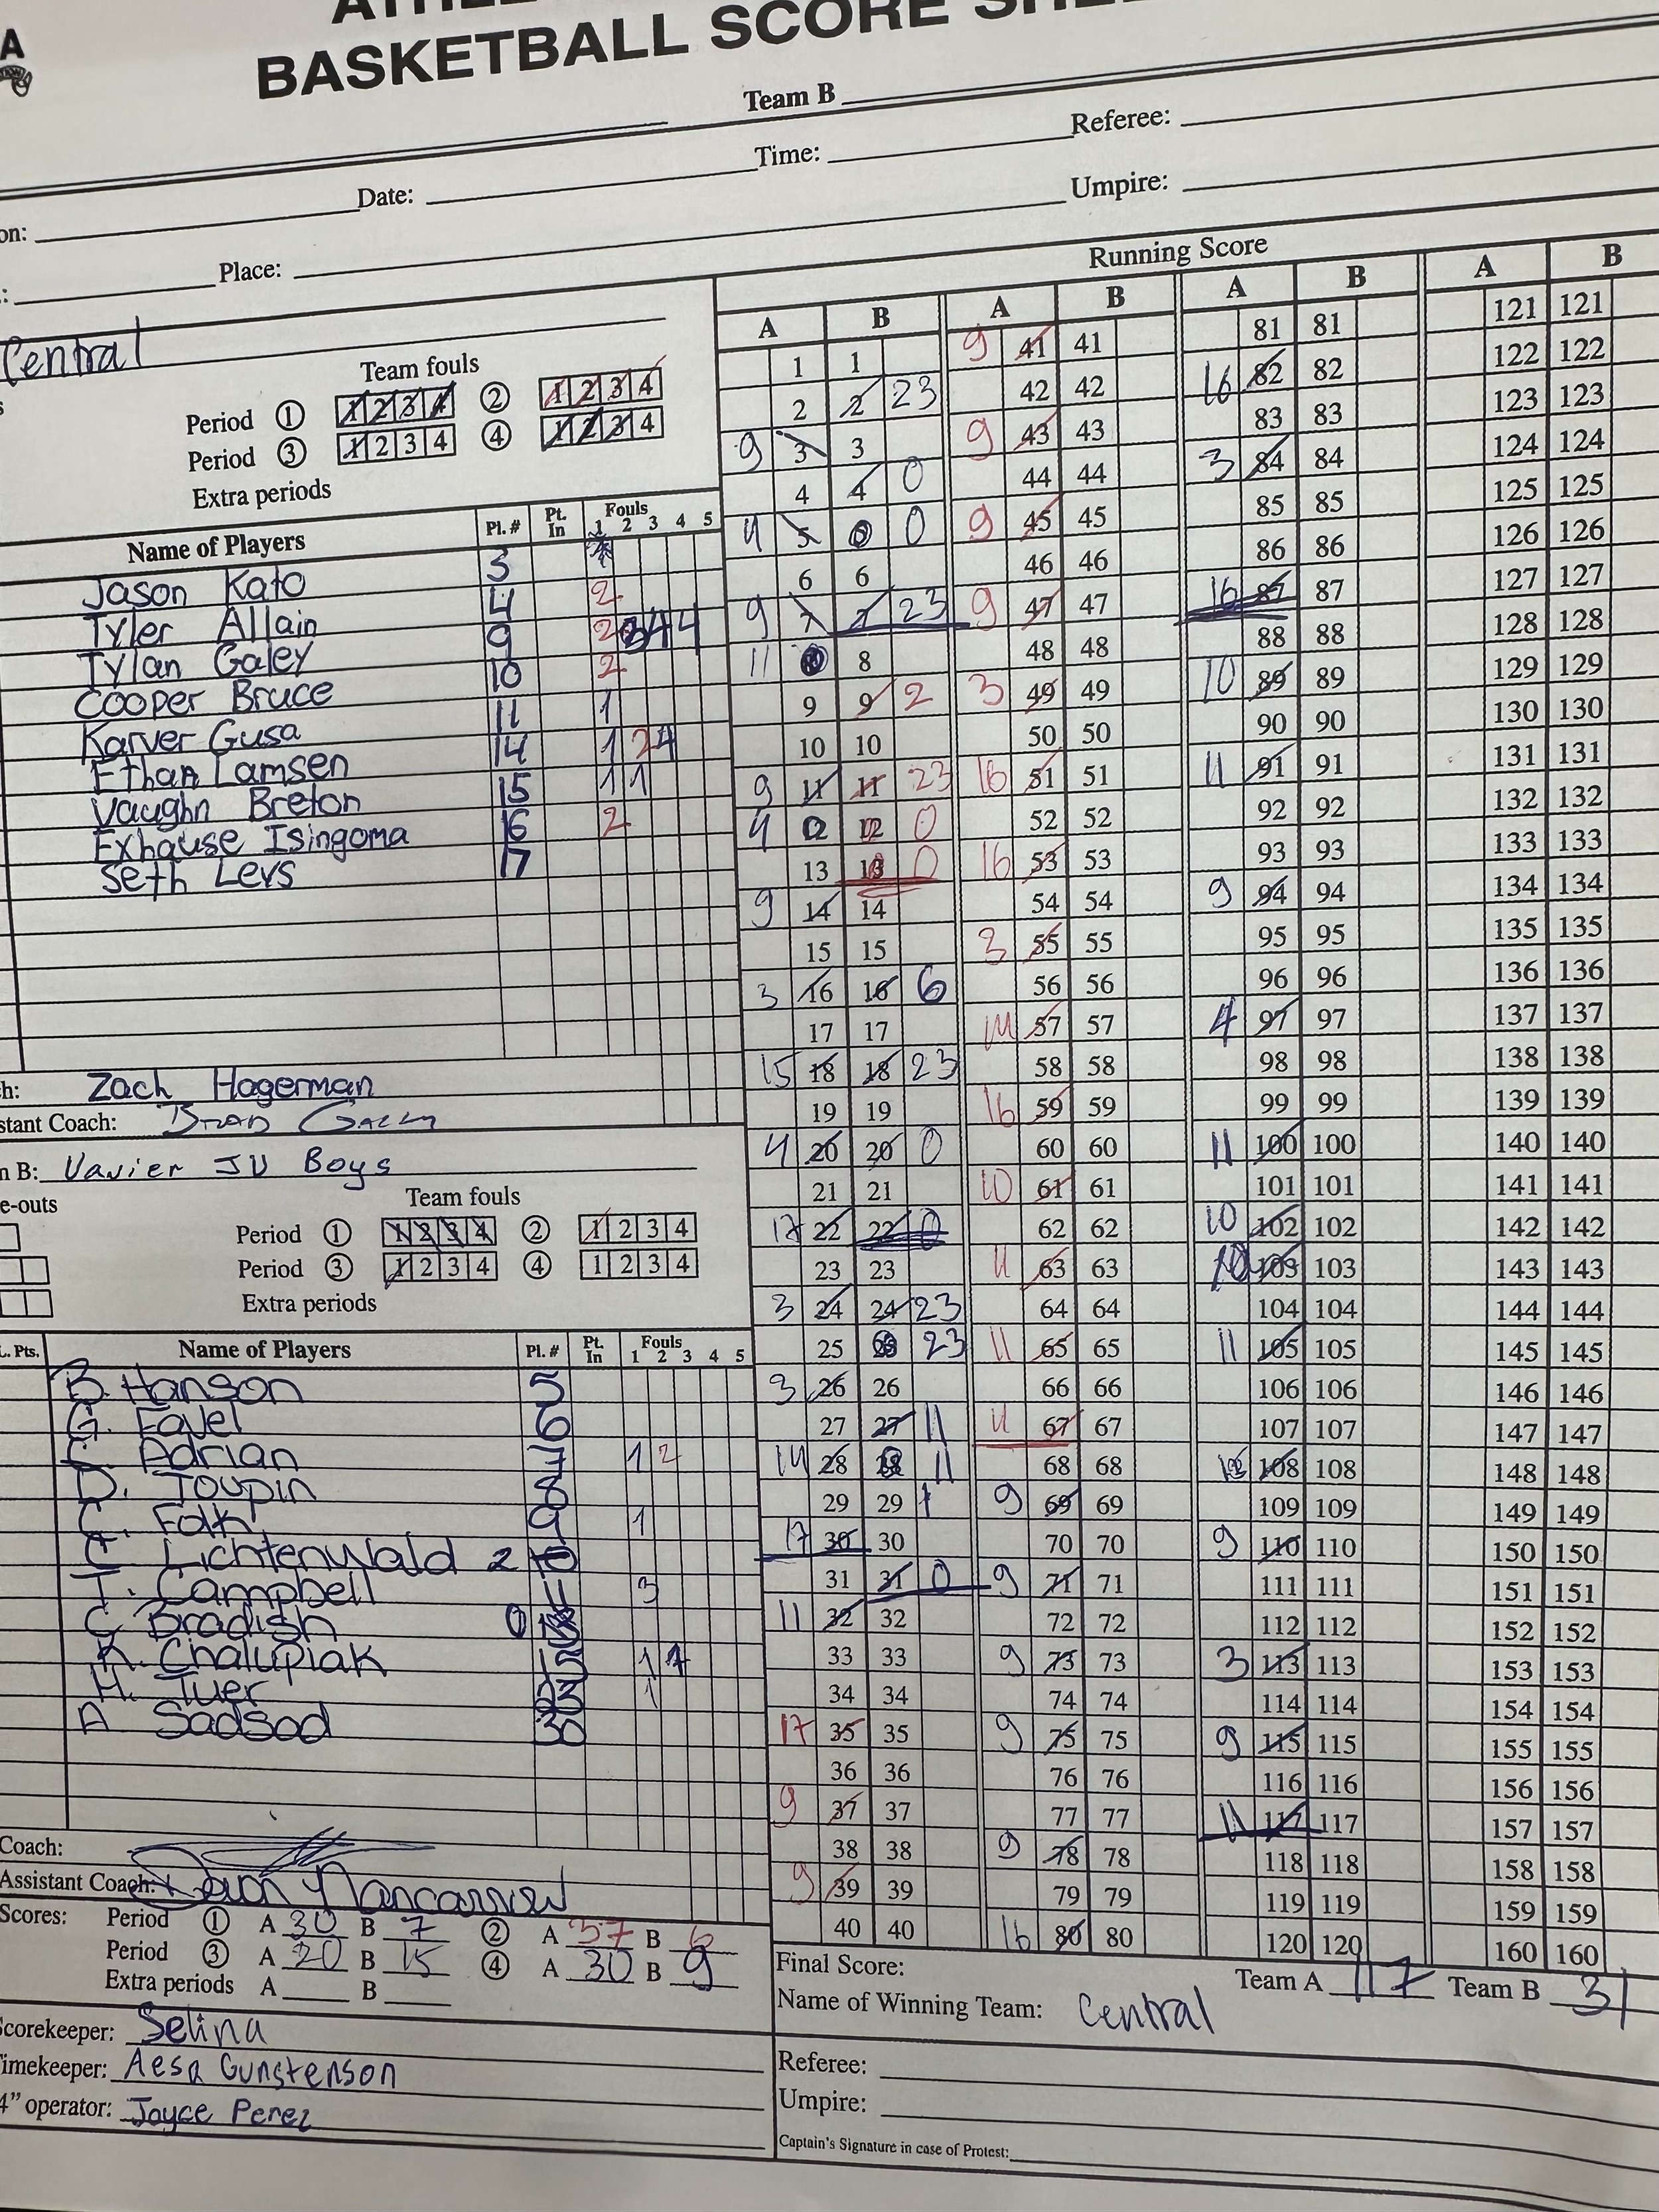 BASKETBALL SCORE
Team B
Date: Time: Referee:
Place: Umpire:
Running Score
Central
Team fouls
Period ① 1 2 3 4 ② 1 2 3 4
Period ③ 1 2 3 4 ④ 1 2 3 4
Extra periods
Name of Players Pl. # Pt. In Fouls 1 2 3 4 5
Jason Kato 3
Tyler Allain 4 2
Tylan Galey 9
Cooper Bruce 10 2
Karver Gusa 11 1
Ethan Lamsen 14 1 2 4
Vaughn Breton 15 1 1
Exhause Isingoma 16 2
Seth Levs 17
Zach Hagerman
stant Coach:
B: Vavier JV Boys
e-outs Team fouls
Period ① 1 2 3 4 ② 1 2 3 4
Period ③ 1 2 3 4 ④ 1 2 3 4
Extra periods
Pts. Name of Players Pl. # Pt. In Fouls 1 2 3 4 5
B. Hanson 5
G. Favel 6
Adrian 7 1 2
D. Toupin 8
C. Folk 9 1
C Lichtenwald 2
T. Campbell 11 3
C. Bradish 0
K. Chalupiak 15 1
H. Tuer 23 1
A Sadsad 30
Coach:
Assistant Coach:
Scores: Period ① A 30 B 7 ② A 37 B 6
Period ③ A 20 B 15 ④ A 30 B 9
Extra periods A B
corekeeper: Selina
imekeeper: Aesa Gunstenson
4" operator: Joyce Perez
A B A B A B A B
1 1 9 41 41 81 81 121 121
2 2 23 42 42 16 82 82 122 122
9 3 3 9 43 43 83 83 123 123
4 4 0 44 44 3 84 84 124 124
4 5 0 9 45 45 85 85 125 125
6 6 46 46 86 86 126 126
9 7 7 23 9 47 47 16 87 87 127 127
11 8 48 48 88 88 128 128
9 9 2 3 49 49 10 89 89 129 129
10 10 50 50 90 90 130 130
9 11 11 23 16 51 51 11 91 91 131 131
4 12 12 0 52 52 92 92 132 132
13 13 0 16 53 53 93 93 133 133
9 14 14 54 54 9 94 94 134 134
15 15 3 55 55 95 95 135 135
3 16 16 6 56 56 96 96 136 136
17 17 14 57 57 4 97 97 137 137
15 18 18 23 58 58 98 98 138 138
19 19 16 59 59 99 99 139 139
4 20 20 0 60 60 11 100 100 140 140
21 21 10 61 61 101 101 141 141
17 22 22 0 62 62 10 102 102 142 142
23 23 11 63 63 10 103 103 143 143
3 24 24 23 64 64 104 104 144 144
25 23 11 65 65 11 105 105 145 145
3 26 26 66 66 106 106 146 146
27 27 11 11 67 67 107 107 147 147
14 28 28 11 68 68 108 108 148 148
29 29 9 69 69 109 109 149 149
17 30 30 70 70 9 110 110 150 150
31 31 0 9 71 71 111 111 151 151
11 32 32 72 72 112 112 152 152
33 33 9 73 73 3 113 113 153 153
34 34 74 74 114 114 154 154
17 35 35 9 75 75 9 115 115 155 155
36 36 76 76 116 116 156 156
9 37 37 77 77 11 117 117 157 157
38 38 9 78 78 118 118 158 158
9 39 39 79 79 119 119 159 159
40 40 16 80 80 120 120 160 160
Final Score: Team A 117 Team B 31
Name of Winning Team: Central
Referee:
Umpire:
Captain's Signature in case of Protest: